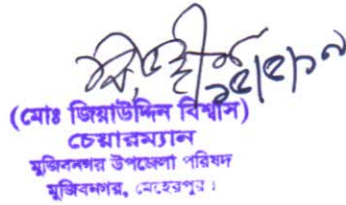 ১৫/৫/১৭
(মোঃ জিয়াউদ্দিন বিশ্বাস)
চেয়ারম্যান
মুজিবনগর উপজেলা পরিষদ
মুজিবনগর, মেহেরপুর।